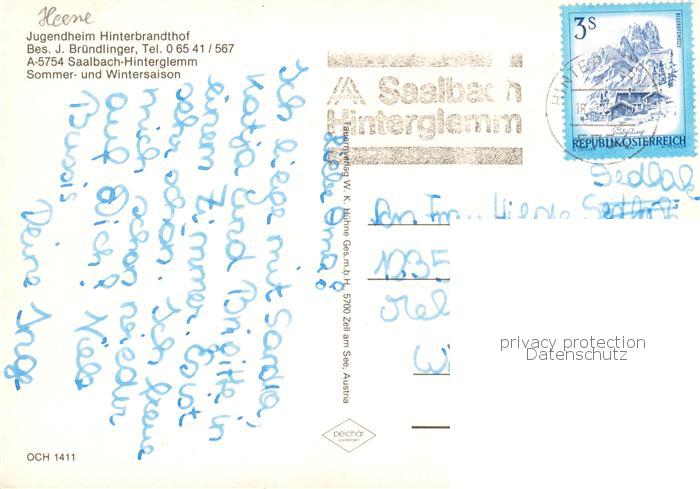 Heene
Jugendheim Hinterbrandthof
Bes. J. Bründlinger, Tel. 0 65 41 / 567
A-5754 Saalbach-Hinterglemm
Sommer- und Wintersaison
Saalbach
Hinterglemm
3 S
REPUBLIK ÖSTERREICH
HINTERG
Liebe Oma!
Ich liege mit Sandra,
Katja und Brigitte in
einem Zimmer. Es ist
sehr schön. Ich freue
mich schon wieder
auf Dich! Viele
Bussis
Deine Inge
Tauernverlag W. K. Hühne Ges.m.b.H., 5700 Zell am See, Austria
An Frau
Sedlak
privacy protection
Datenschutz
peichär
OCH 1411